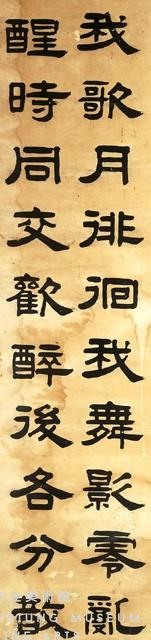 我歌月徘徊我舞影零亂
醒時同交歡醉後各分散
美術館
MUSEUM